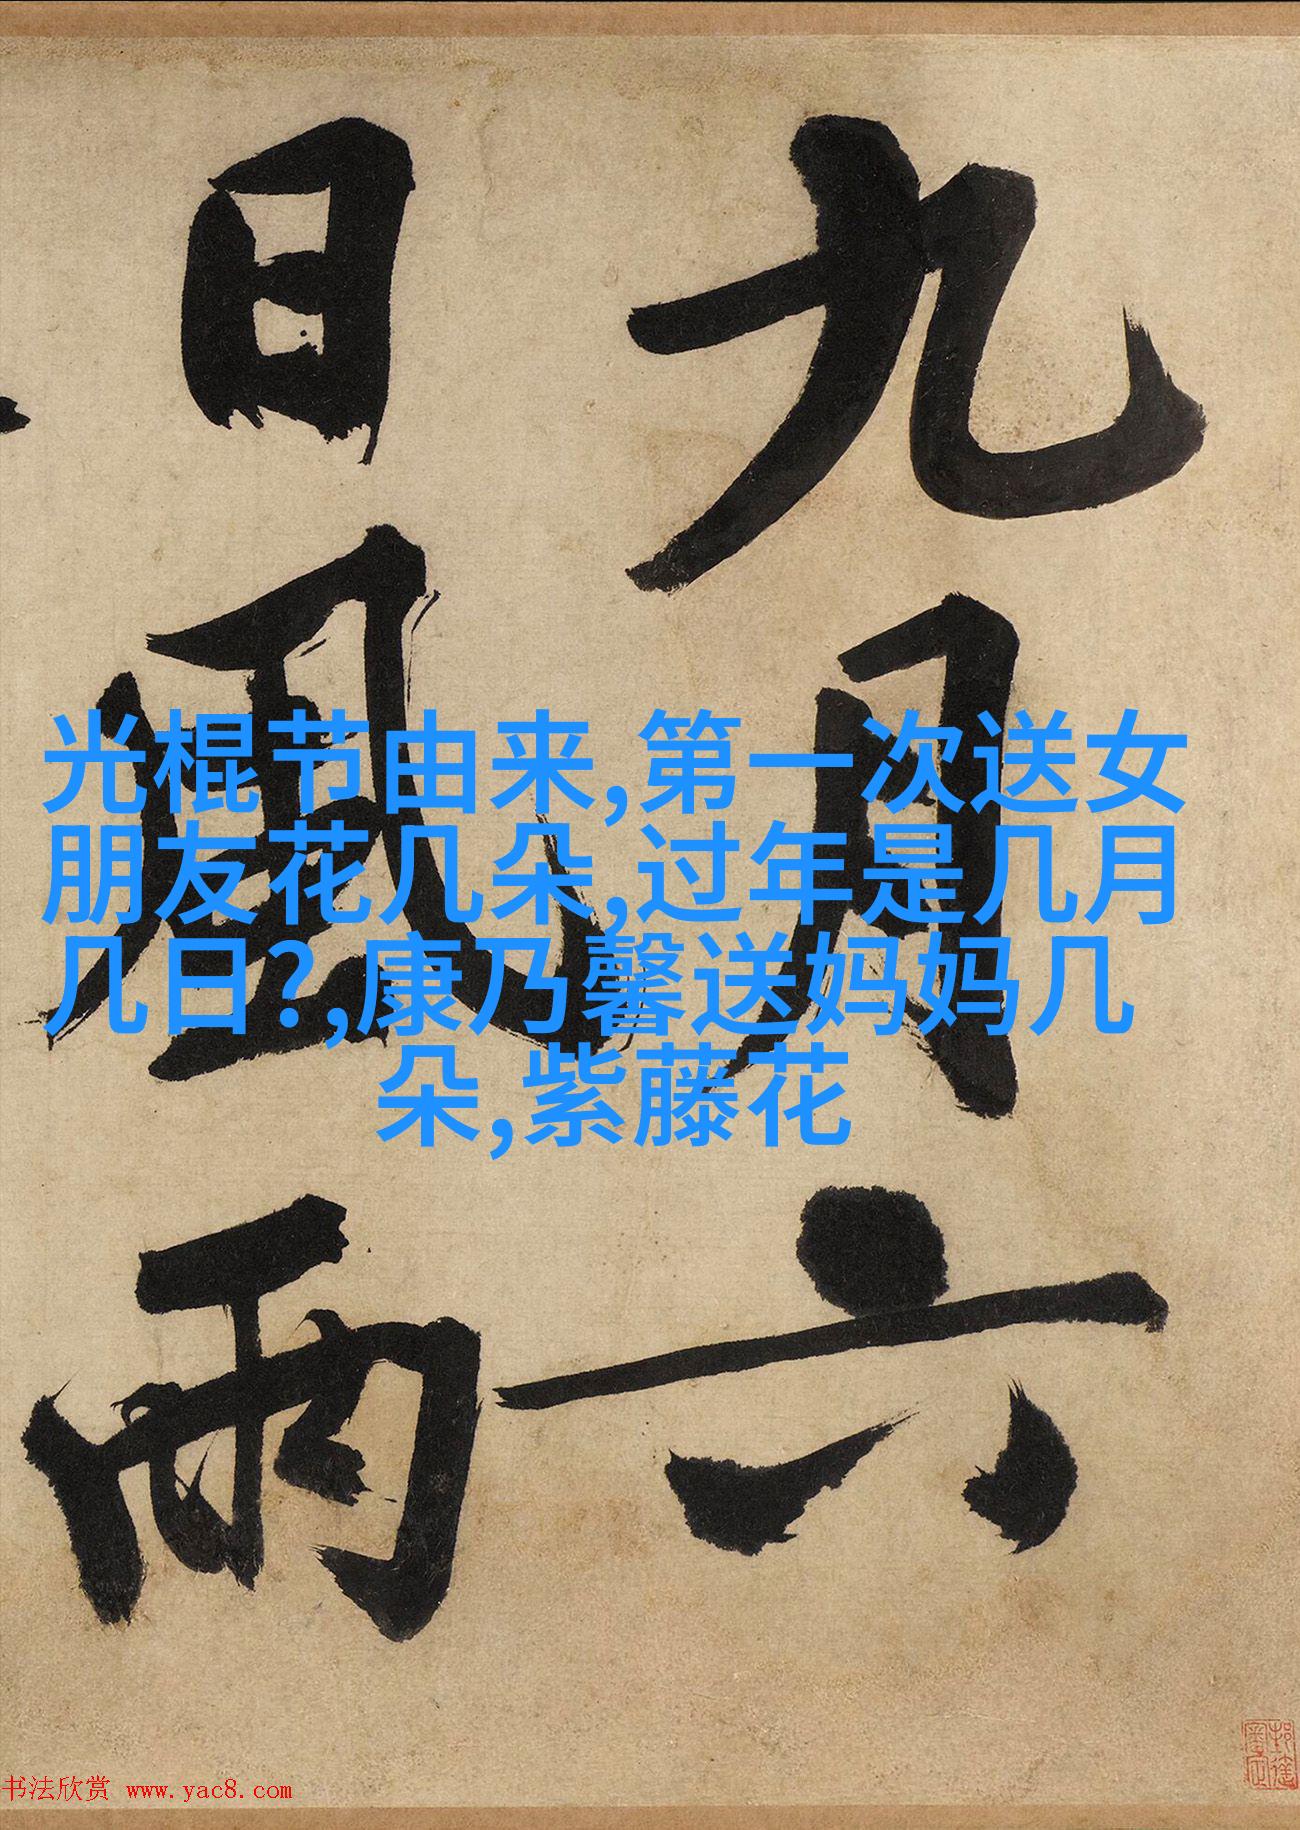 九月六
日風雨
光棍节由来,第一次送女
朋友花几朵,过年是几月
几日?,康乃馨送妈妈几
朵,紫藤花
书法欣赏 www.yac8.com